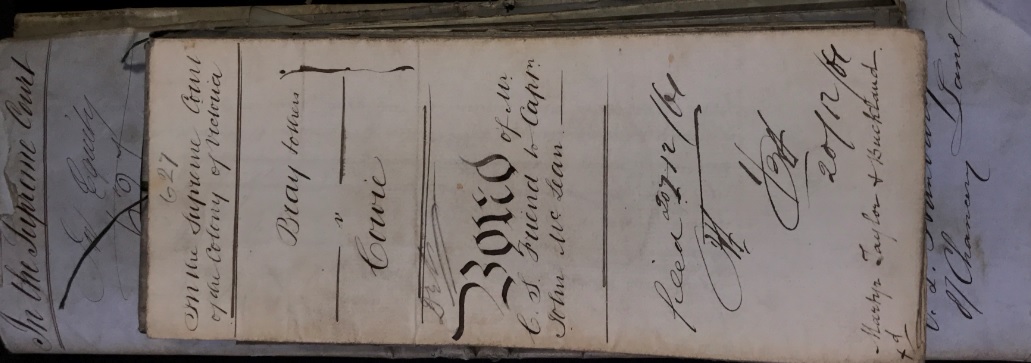 In the Supreme Court
In Equity
627
In the Supreme Court
of the Colony of Victoria
Bray & others
v
Cowie
Bond of Mr.
C. S. Friend to Captn.
John McLean
filed 20/12/61
20/12/61
Martyn Taylor & Buckland
of Chancery Lane